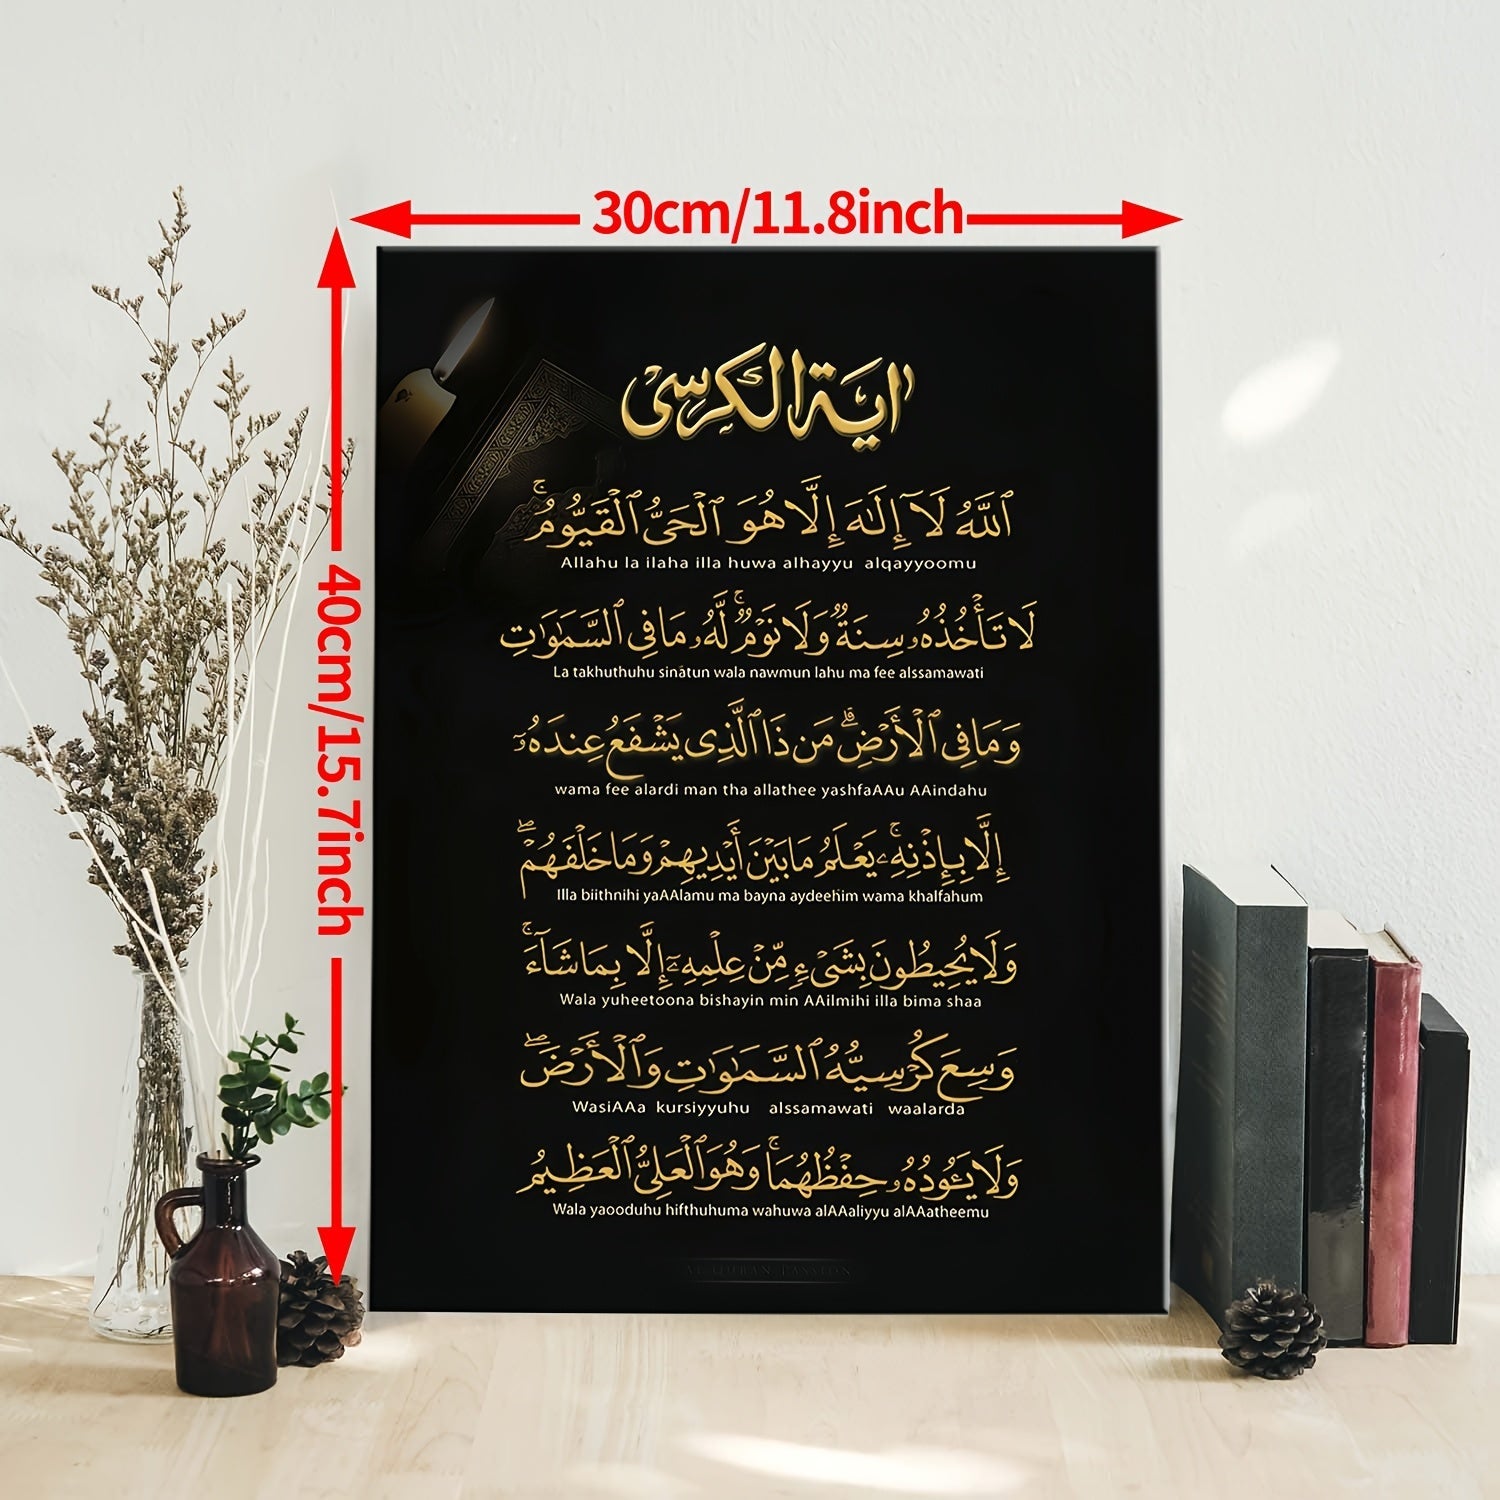 30cm/11.8inch
40cm/15.7inch
اية الكرسي
ٱللَّهُ لَآ إِلَٰهَ إِلَّا هُوَ ٱلْحَىُّ ٱلْقَيُّومُ ۚ
Allahu la ilaha illa huwa alhayyu alqayyoomu
لَا تَأْخُذُهُۥ سِنَةٌ وَلَا نَوْمٌ ۚ لَّهُۥ مَا فِى ٱلسَّمَٰوَٰتِ
La takhuthuhu sinatun wala nawmun lahu ma fee alssamawati
وَمَا فِى ٱلْأَرْضِ ۗ مَن ذَا ٱلَّذِى يَشْفَعُ عِندَهُۥٓ
wama fee alardi man tha allathee yashfaAAu AAindahu
إِلَّا بِإِذْنِهِۦ ۚ يَعْلَمُ مَا بَيْنَ أَيْدِيهِمْ وَمَا خَلْفَهُمْ ۖ
Illa biithnihi yaAAlamu ma bayna aydeehim wama khalfahum
وَلَا يُحِيطُونَ بِشَىْءٍ مِّنْ عِلْمِهِۦٓ إِلَّا بِمَا شَآءَ ۚ
Wala yuheetoona bishayin min AAilmihi illa bima shaa
وَسِعَ كُرْسِيُّهُ ٱلسَّمَٰوَٰتِ وَٱلْأَرْضَ ۖ
WasiAAa kursiyyuhu alssamawati waalarda
وَلَا يَـُٔودُهُۥ حِفْظُهُمَا ۚ وَهُوَ ٱلْعَلِىُّ ٱلْعَظِيمُ
Wala yaooduhu hifthuhuma wahuwa alAAaliyyu alAAatheemu
AL QURAN PASSION